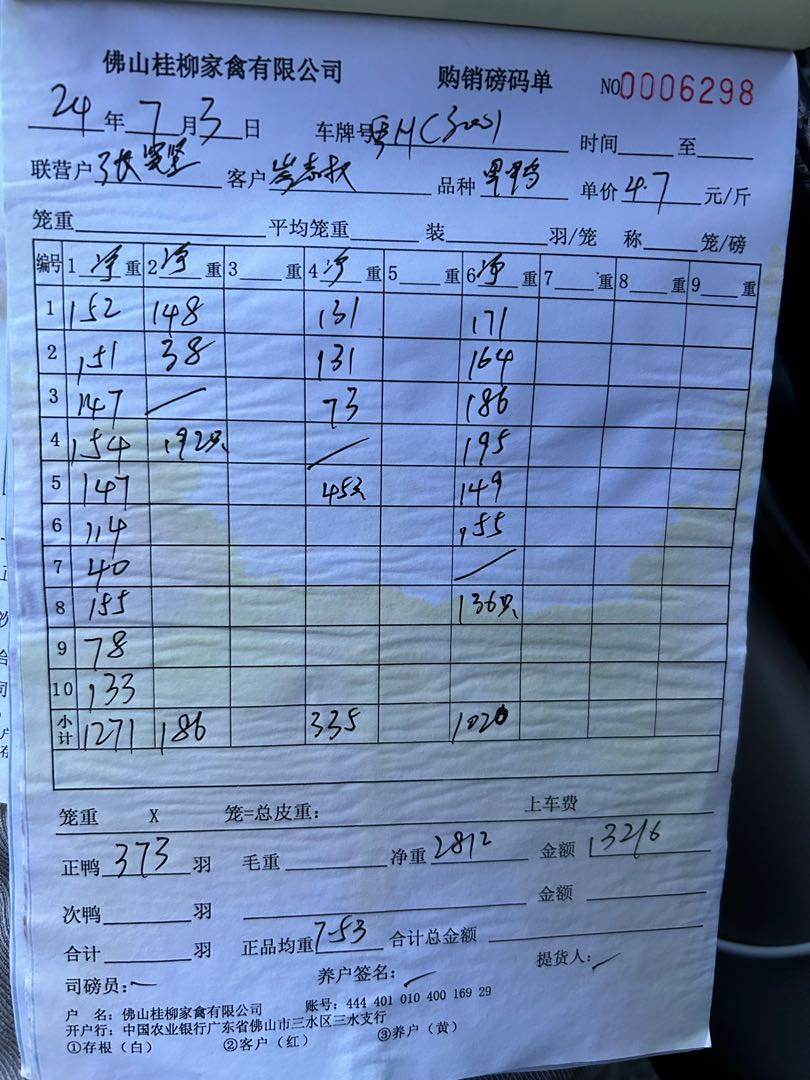 佛山桂柳家禽有限公司 购销磅码单 NO0006298
24年7月3日 车牌号 时间 至
联营户 张 客户 品种 单价4.7元/斤
笼重 平均笼重 装 羽/笼 称 笼/磅
编号 1净重 2净重 3重 4净重 5重 6净重 7重 8重 9重
1 152 148 131 171
2 151 38 131 164
3 147 73 186
4 154 192只 195
5 147 45只 149
6 114 155
7 40
8 155 136只
9 78
10 133
小计 1271 186 335 1020
笼重 X 笼=总皮重: 上车费
正鸭373羽 毛重 净重2812 金额13216
次鸭 羽 金额
合计 羽 正品均重7-53 合计总金额
司磅员: 养户签名: 提货人:
户 名: 佛山桂柳家禽有限公司 账号: 444 401 010 400 169 29
开户行: 中国农业银行广东省佛山市三水区三水支行
①存根(白) ②客户(红) ③养户(黄)